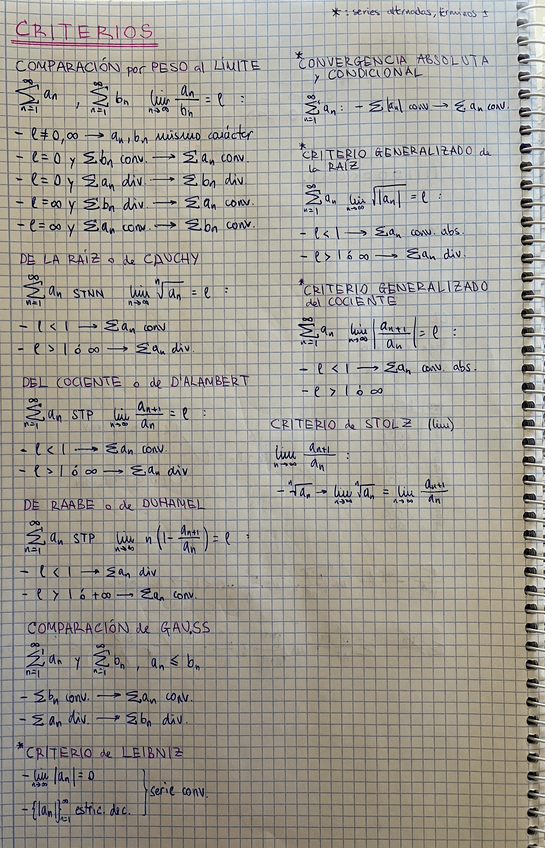 *: series alternadas, términos ±
CRITERIOS
COMPARACIÓN por PESO al LÍMITE
∞∑n=1 an , ∞∑n=1 bn lim n→∞ an/bn = ℓ :
- ℓ ≠ 0, ∞ → an, bn mismo carácter
- ℓ = 0 y ∑bn conv. → ∑an conv.
- ℓ = 0 y ∑an div → ∑bn div.
- ℓ = ∞ y ∑bn div. → ∑an conv.
- ℓ = ∞ y ∑an conv. → ∑bn conv.
DE LA RAÍZ o de CAUCHY
∞∑n=1 an STNN lim n→∞ ⁿ√an = ℓ :
- ℓ < 1 → ∑an conv
- ℓ > 1 ó ∞ → ∑an div.
DEL COCIENTE o de D'ALAMBERT
∞∑n=1 an STP lim n→∞ an+1/an = ℓ :
- ℓ < 1 → ∑an conv.
- ℓ > 1 ó ∞ → ∑an div
DE RAABE o de DUHAMEL
∞∑n=1 an STP lim n→∞ n(1 - an+1/an) = ℓ :
- ℓ < 1 → ∑an div
- ℓ > 1 ó +∞ → ∑an conv.
COMPARACIÓN de GAUSS
∞∑n=1 an y ∞∑n=1 bn , an ≤ bn
- ∑bn conv. → ∑an conv.
- ∑an div. → ∑bn div.
*CRITERIO de LEIBNIZ
- lim n→∞ |an| = 0
} serie conv.
- {|an|}∞n=1 estric. dec.
*CONVERGENCIA ABSOLUTA
y CONDICIONAL
∞∑n=1 an : - ∑|an| conv → ∑an conv.
*CRITERIO GENERALIZADO de
la RAÍZ
∞∑n=1 an lim n→∞ √|an| = ℓ :
- ℓ < 1 → ∑an conv. abs.
- ℓ > 1 ó ∞ → ∑an div.
*CRITERIO GENERALIZADO
del COCIENTE
∞∑n=1 an lim n→∞ |an+1/an| = ℓ :
- ℓ < 1 → ∑an conv. abs.
- ℓ > 1 ó ∞
CRITERIO de STOLZ (lim)
lim n→∞ an+1/an :
- ⁿ√an → lim n→∞ ⁿ√an = lim n→∞ an+1/an